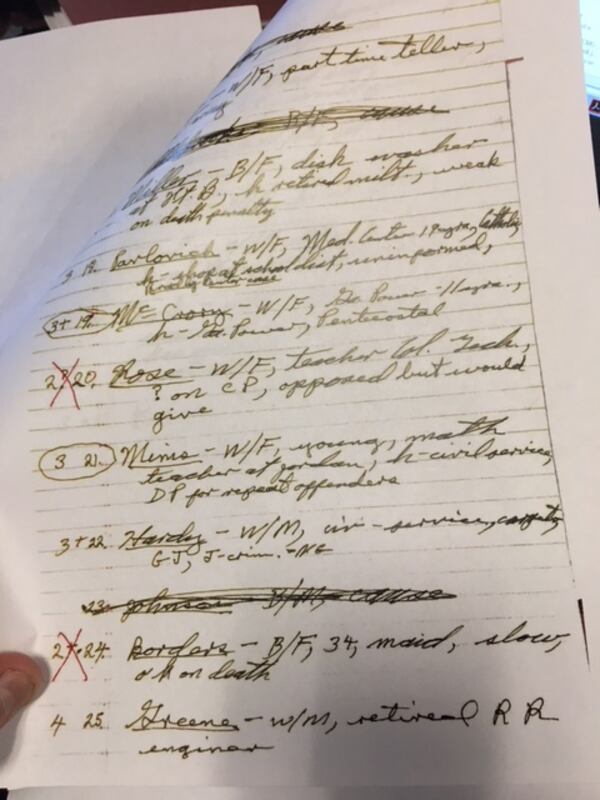 cause
W/F, part time teller,
B/F, cause
- B/F, dish washer
at Ft. B., h retired milt., weak
on death penalty
3 18. Parlovich - W/F, Med. Center 19 yrs, Catholic
h - shop at school dist, uninformed,
3+ 19. Mc Crory - W/F, Ga. Power - 11 yrs.,
h - Ga. Power, Pentecostal
2? 20. Rose - W/F, teacher Col. Tech.,
? on CP, opposed but would
give
3 21. Mims - W/F, young, math
teacher at Jordan, h - civil service,
DP for repeat offenders
3+ 22. Hardy - W/M, civ - service,
GJ, J - crim. - NG
23. Johnson - B/M, cause
2+ 24. Borders - B/F, 34, maid, slow,
ok on death
4 25. Greene - W/M, retired R R
enginer